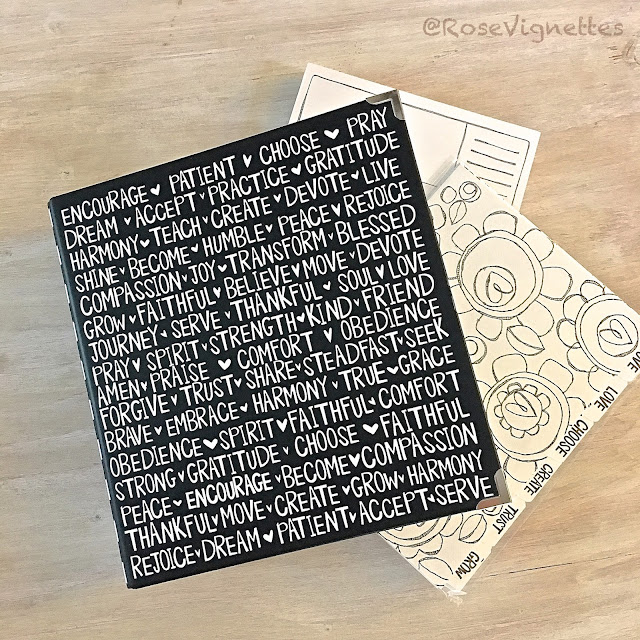 @RoseVignettes
ENCOURAGE ♥ PATIENT ♥ CHOOSE ♥ PRAY
DREAM ♥ ACCEPT ♥ PRACTICE ♥ GRATITUDE
HARMONY ♥ TEACH ♥ CREATE ♥ DEVOTE ♥ LIVE
SHINE ♥ BECOME ♥ HUMBLE ♥ PEACE ♥ REJOICE
COMPASSION ♥ JOY ♥ TRANSFORM ♥ BLESSED
GROW ♥ FAITHFUL ♥ BELIEVE ♥ MOVE ♥ DEVOTE
JOURNEY ♥ SERVE ♥ THANKFUL ♥ SOUL ♥ LOVE
PRAY ♥ SPIRIT ♥ STRENGTH ♥ KIND ♥ FRIEND
AMEN ♥ PRAISE ♥ COMFORT ♥ OBEDIENCE
FORGIVE ♥ TRUST ♥ SHARE ♥ STEADFAST ♥ SEEK
BRAVE ♥ EMBRACE ♥ HARMONY ♥ TRUE ♥ GRACE
OBEDIENCE ♥ SPIRIT ♥ FAITHFUL ♥ COMFORT
STRONG ♥ GRATITUDE ♥ CHOOSE ♥ FAITHFUL
PEACE ♥ ENCOURAGE ♥ BECOME ♥ COMPASSION
THANKFUL ♥ MOVE ♥ CREATE ♥ GROW ♥ HARMONY
REJOICE ♥ DREAM ♥ PATIENT ♥ ACCEPT ♥ SERVE
LOVE
CHOOSE
CREATE
TRUST
GROW